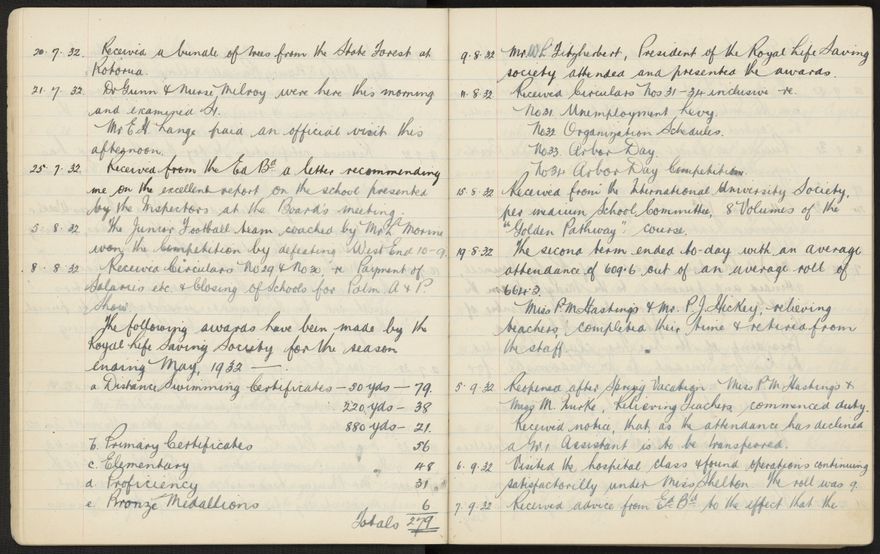 20. 7. 32. Received a bundle of trees from the State Forest at
Rotorua.
21. 7. 32. Dr Gunn & Nurse Milroy were here this morning
and examined
Mr E.H. Lange paid an official visit this
afternoon.
25. 7. 32. Received from the Ed Bd a letter recommending
me on the excellent report on the school presented
by the Inspectors at the Board's meeting.
5. 8. 32 The Junior Football team coached by Mr
won the Competition by defeating West End 10-9.
8. 8. 32 Received Circulars No 29 & No 30, re Payment of
Salaries etc. & Closing of Schools for Palm. A & P.
Show.
The following awards have been made by the
Royal Life Saving Society for the season
ending May, 1932 —
a Distance Swimming Certificates — 50 yds — 79.
220 yds — 38
880 yds — 21.
b. Primary Certificates 56
c. Elementary " 48
d Proficiency 31
e. Bronze Medallions 6
Totals 279
9. 8. 32 Mr W L Fitzherbert, President of the Royal Life Saving
society attended and presented the awards.
11. 8. 32 Received Circulars Nos 31-34 inclusive re.
No 31 Unemployment Levy.
No 32 Organization Schedules.
No 33 Arbor Day
No 34 Arbor Day Competition
15. 8. 32 Received from the International University Society,
per School Committee, 8 Volumes of the
"Golden Pathway" course.
19. 8. 32 The second term ended to-day with an average
attendance of 609.6 out of an average roll of
664.3.
Miss P. M Hastings & Mr. P. J. Hickey, relieving
teachers, completed their time & retired from
the staff.
5. 9. 32 Reopened after Spring Vacation Miss P. M. Hastings &
Miss M. Burke, Relieving Teachers commenced duty.
Received notice, that, as the attendance has declined
a Gr. 1 Assistant is to be transferred.
6. 9. 32 Visited the hospital class & found operations continuing
satisfactorily under Miss Shelton. The roll was 9.
7. 9. 32 Received advice from Ed Bd to the effect that the